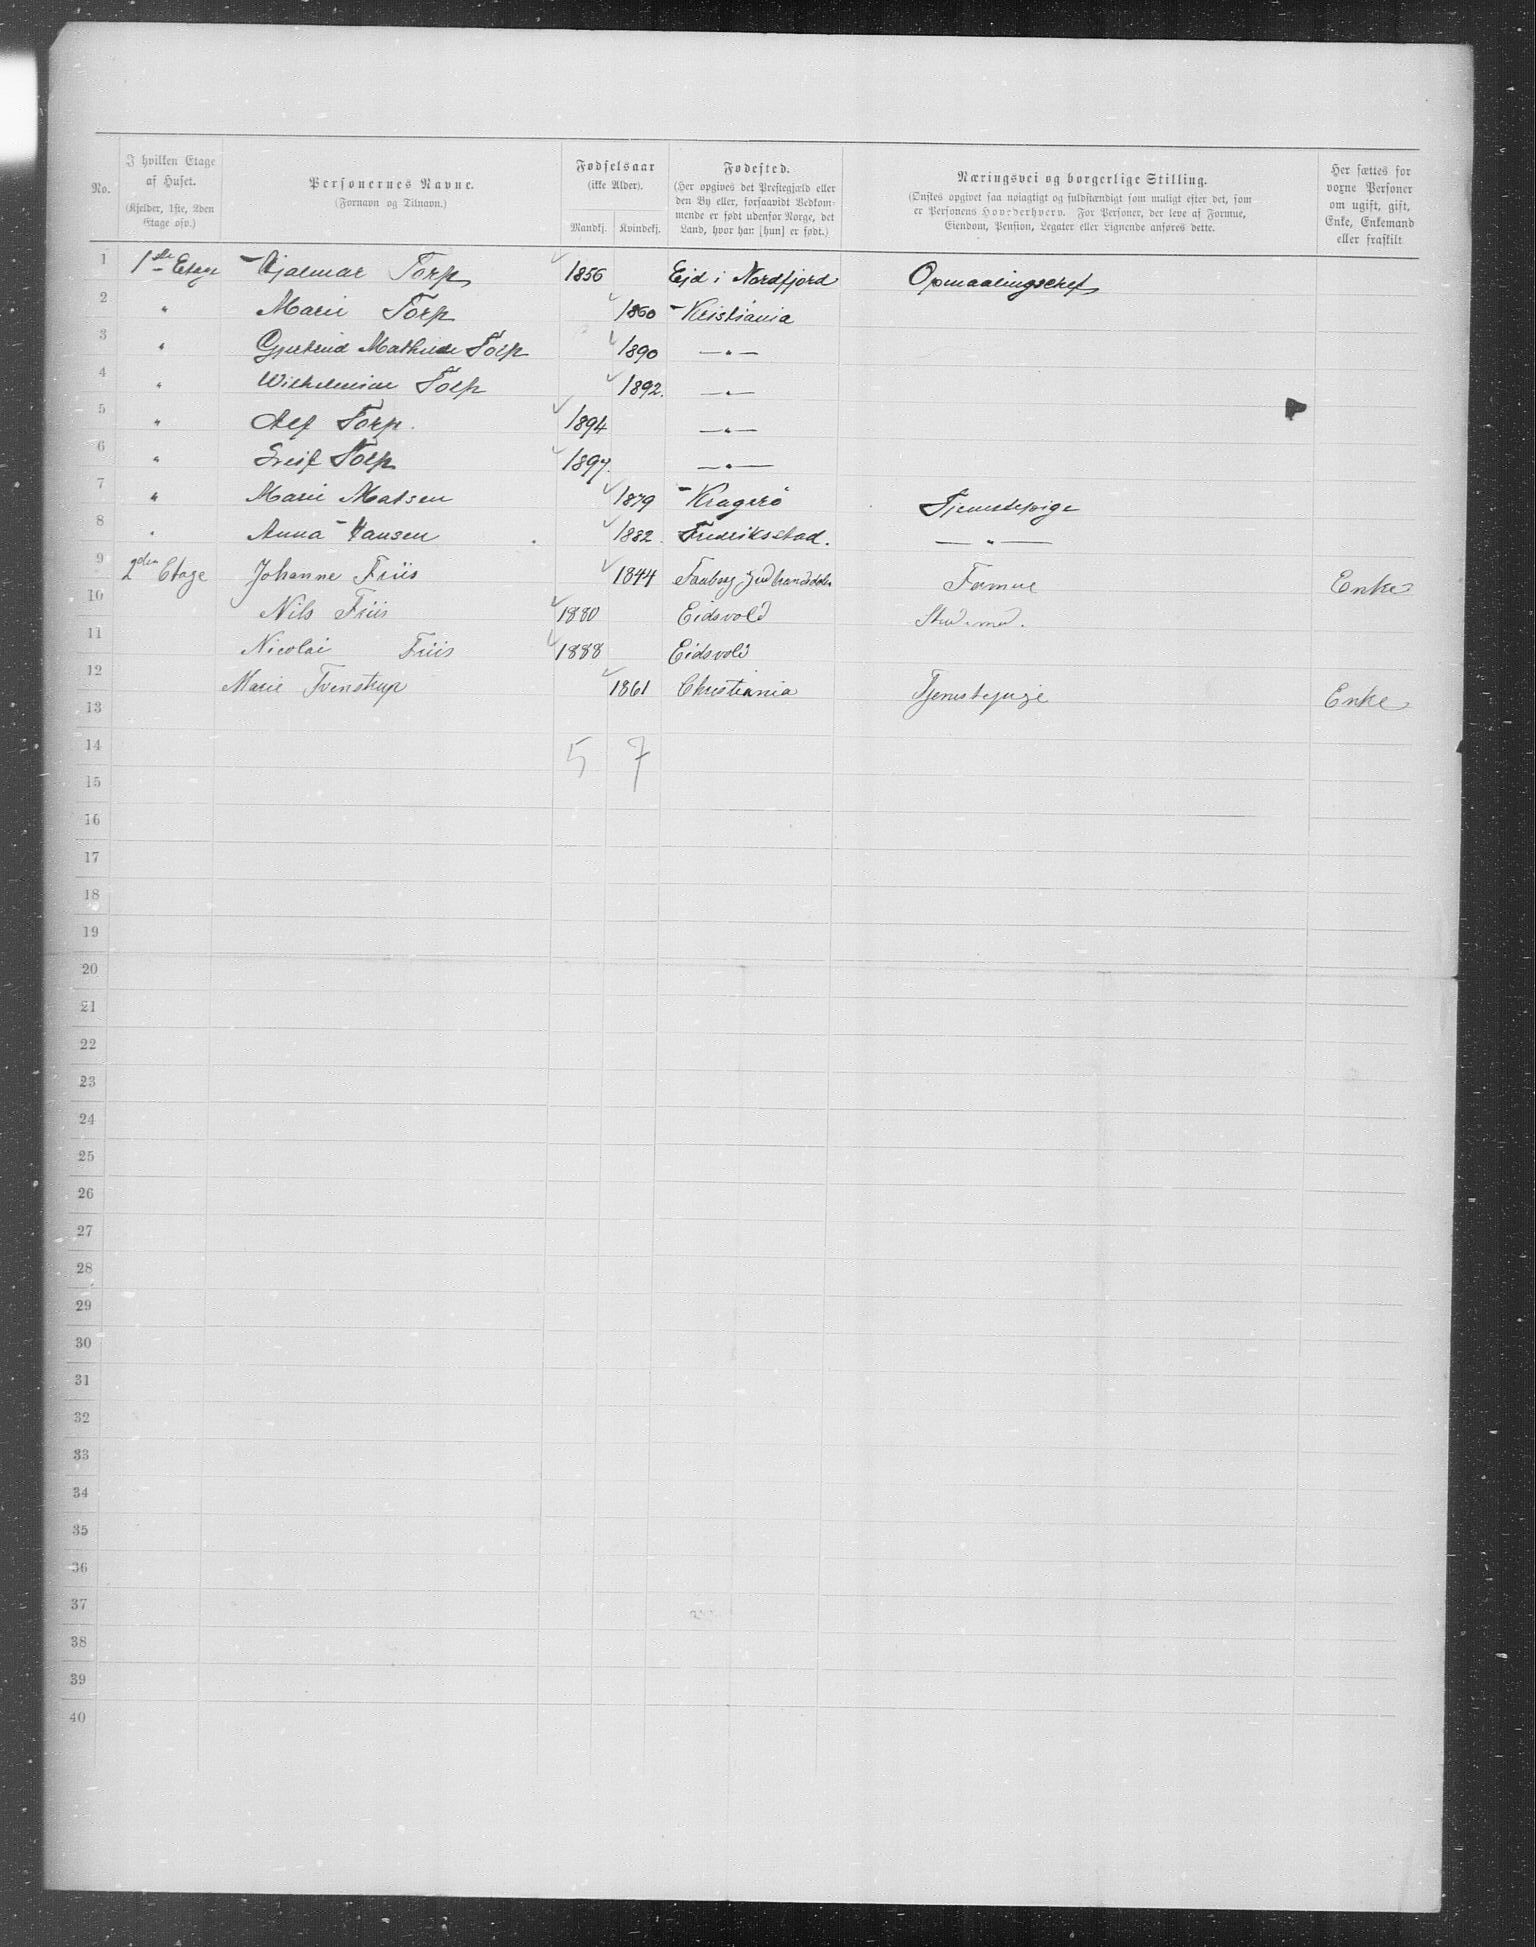 No. | I hvilken Etage af Huset. (Kjelder, 1ste, 2den Etage osv.) | Personernes Navne. (Fornavn og Tilnavn.) | Fødselsaar (ikke Alder). Mandkj. Kvindekj. | Fødested. (Her opgives det Prestegjæld eller den By eller, forsaavidt Vedkommende er født udenfor Norge, det Land, hvor han [hun] er født.) | Næringsvei og borgerlige Stilling. (Ønskes opgivet saa nøiagtigt og fuldstændigt som muligt efter det, som er Personens Hovederhverv. For Personer, der leve af Formue, Eiendom, Pension, Legater eller Lignende anføres dette. | Her sættes for voxne Personer om ugift, gift, Enke, Enkemand eller fraskilt
1 1ste Etage Hjalmar Torp 1856 Ejd i Nordfjord Opmaalingschef
2 " Marie Torp 1860 Kristiania
3 " Gjertrud Mathilde Torp 1890 — " —
4 " Wilhelmine Torp 1892. — " —
5 " Alf Torp. 1894 — " —
6 " Leif Torp 1897. — " —
7 " Marie Matsen 1879 Kragerö Tjenestepige
8 " Anna Hansen 1882. Fredriksstad. — " —
9 2den Etage Johanne Friis 1844 Gudbrandsdalen Formue Enke
10 Nils Friis 1880 Eidsvold Stud. med.
11 Nicolai Friis 1888 Eidsvold
12 Marie Tvenstrup 1861 Christiania Tjenestepige Enke
13
14 5 7
15
16
17
18
19
20
21
22
23
24
25
26
27
28
29
30
31
32
33
34
35
36
37
38
39
40